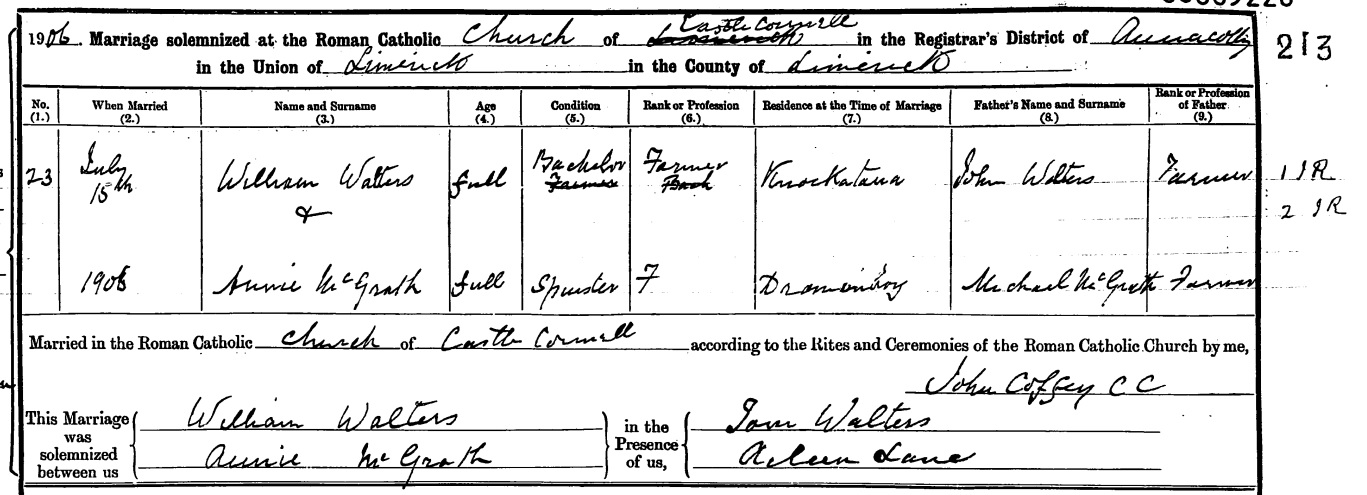 1906. Marriage solemnized at the Roman Catholic Church of Castle Connell in the Registrar's District of Annacotty
213
in the Union of Limerick in the County of Limerick
No. (1.) When Married (2.) Name and Surname (3.) Age (4.) Condition (5.) Rank or Profession (6.) Residence at the Time of Marriage (7.) Father's Name and Surname (8.) Rank or Profession of Father (9.)
23 July 15th William Walters full Bachelor Farmer Knockatana John Walters Farmer 1 IR
& 2 IR
1906 Annie McGrath full Spinster F Michael McGrath Farmer
Married in the Roman Catholic church of Castle Connell according to the Rites and Ceremonies of the Roman Catholic Church by me,
John Coffey CC
This Marriage was solemnized between us William Walters in the Presence of us, Tom Walters
Annie McGrath Aileen Lane